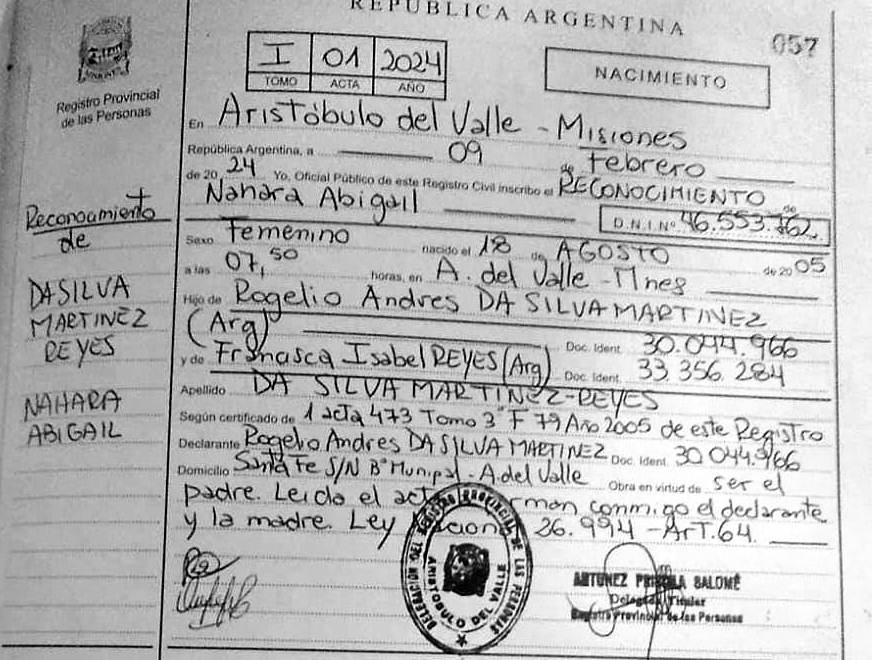 REPÚBLICA ARGENTINA
057
Registro Provincial
de las Personas
I 01 2024
TOMO ACTA AÑO
NACIMIENTO
En Aristóbulo del Valle - Misiones
República Argentina, a 09 de febrero
de 20 24 Yo, Oficial Público de este Registro Civil inscribo el RECONOCIMIENTO de
Nahara Abigail D.N.I.Nº 46.553.762
Sexo Femenino nacido el 18 de AGOSTO de 20 05
a las 07,50 horas, en A. del Valle - Mnes
Hijo de Rogelio Andres DA SILVA MARTINEZ
(Arg) Doc. Ident. 30.044.966
y de Francisca Isabel REYES (Arg) Doc. Ident. 33.356.284
Apellido DA SILVA MARTINEZ-REYES
Según certificado de 1 acta 473 Tomo 3º F 79 Año 2005 de este Registro
Declarante Rogelio Andres DA SILVA MARTINEZ Doc. Ident. 30.044.966
Domicilio Santa Fe S/N Bº Munipal - A. del Valle Obra en virtud de ser el
padre. Leida el acta conmigo el declarante
y la madre. Ley 26.994 - ArT. 64.
Reconocimiento
de
DA SILVA
MARTINEZ
REYES
NAHARA
ABIGAIL
DELEGACIÓN DEL REGISTRO PROVINCIAL DE LAS PERSONAS
ARISTOBULO DEL VALLE
ANTUNEZ SALOMÉ
Titular
Registro Provincial de las Personas